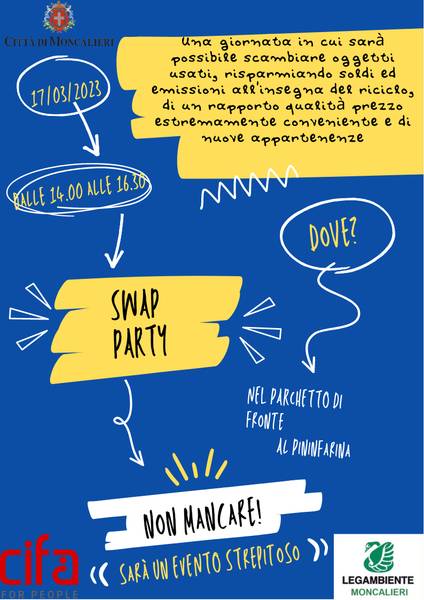 CITTÀ DI MONCALIERI
Una giornata in cui sarà
possibile scambiare oggetti
usati, risparmiando soldi ed
emissioni all'insegna del riciclo,
di un rapporto qualità prezzo
estremamente conveniente e di
nuove appartenenze
17/03/2023
DALLE 14.00 ALLE 16.30
DOVE?
SWAP
PARTY
NEL PARCHETTO DI
FRONTE
AL PININFARINA
NON MANCARE!
SARÀ UN EVENTO STREPITOSO
cifa
FOR PEOPLE
LEGAMBIENTE
MONCALIERI